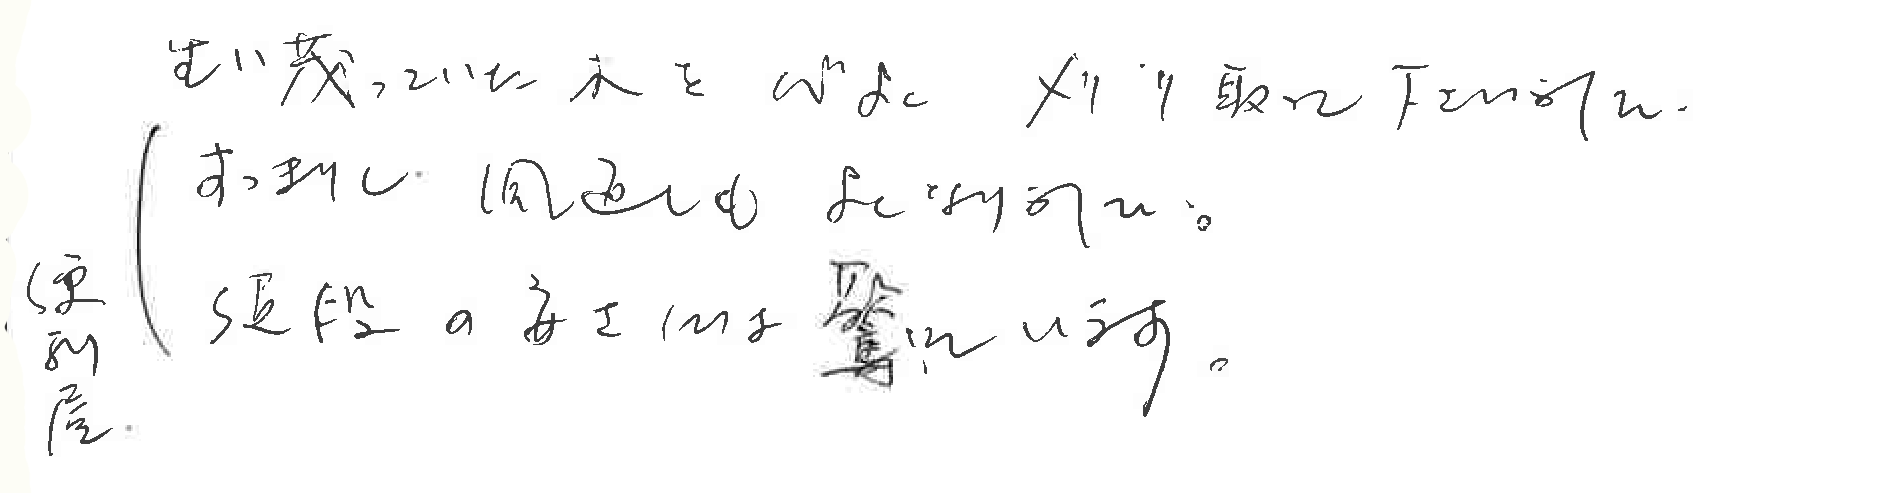 生い茂っていた木を 心よく 刈り取って下さいました.
すっきりし. 風通しも よくなりました。
値段の安さには驚いています。
便利屋.